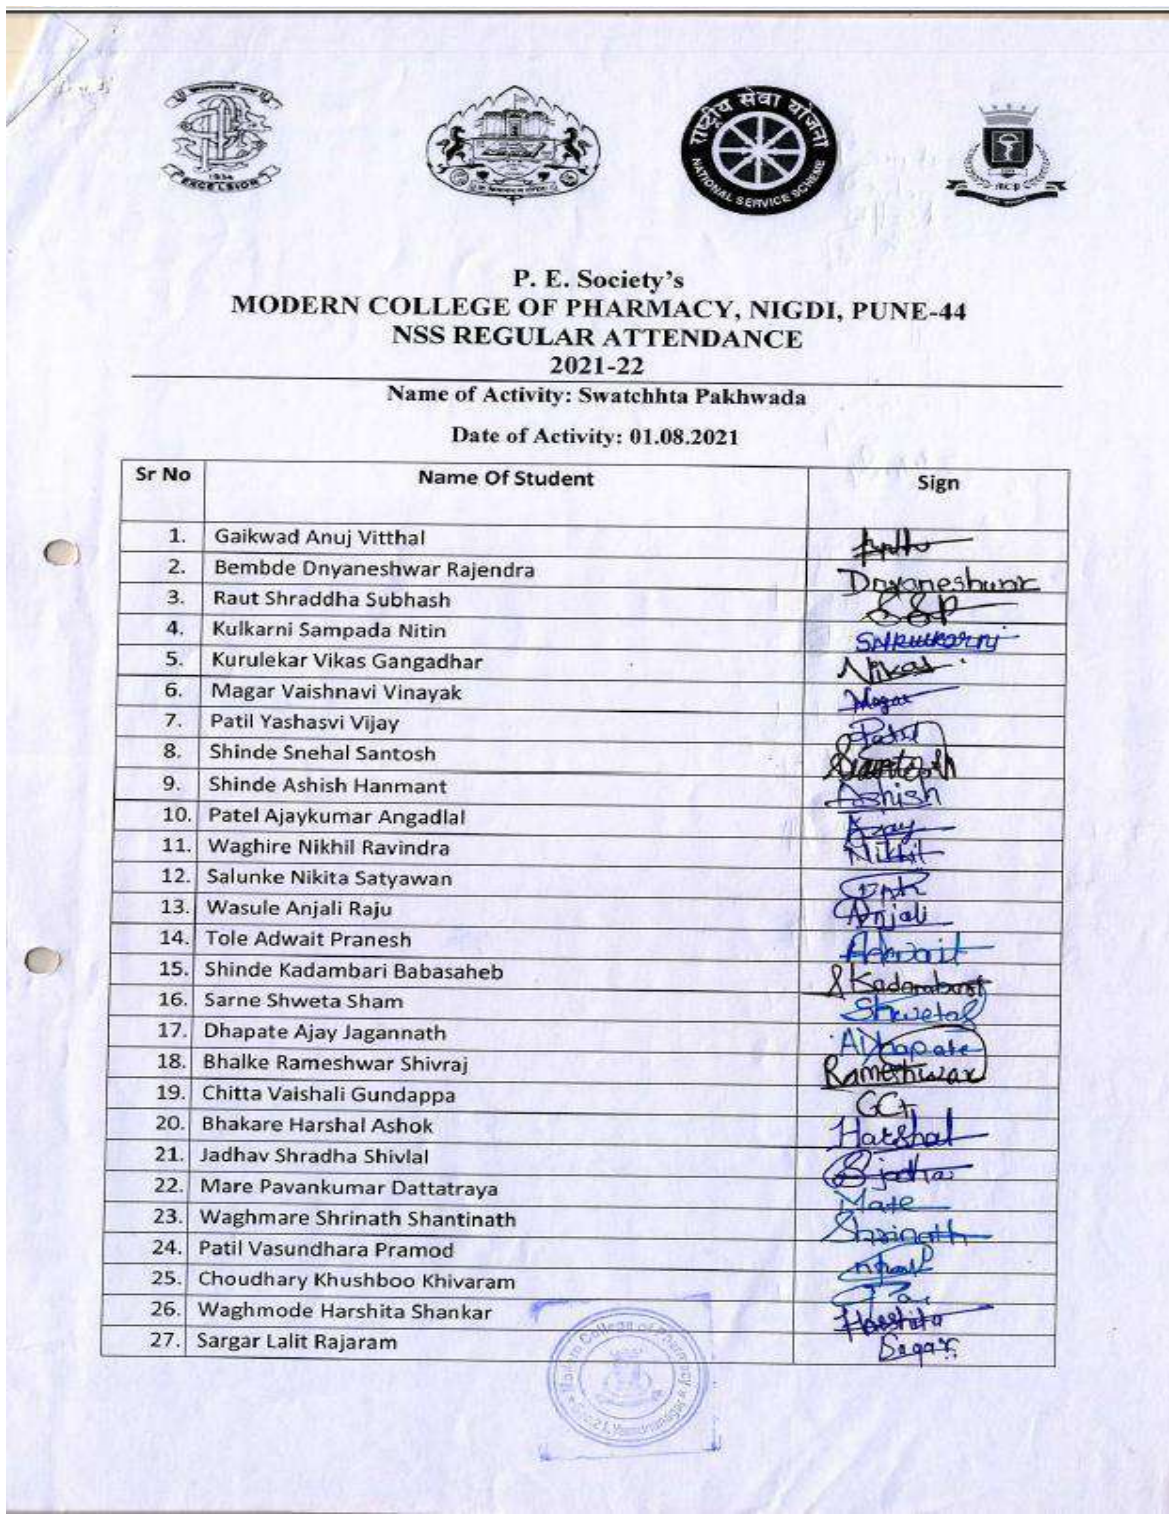 1934
EXCELSIOR
राष्ट्रीय सेवा योजना
NATIONAL SERVICE SCHEME
P. E. Society’s
MODERN COLLEGE OF PHARMACY, NIGDI, PUNE-44
NSS REGULAR ATTENDANCE
2021-22
Name of Activity: Swatchhta Pakhwada
Date of Activity: 01.08.2021
Sr No Name Of Student Sign
1. Gaikwad Anuj Vitthal
2. Bembde Dnyaneshwar Rajendra Dnyaneshwar
3. Raut Shraddha Subhash
4. Kulkarni Sampada Nitin SNKulkarni
5. Kurulekar Vikas Gangadhar Vikas
6. Magar Vaishnavi Vinayak Magar
7. Patil Yashasvi Vijay Patil
8. Shinde Snehal Santosh
9. Shinde Ashish Hanmant Ashish
10. Patel Ajaykumar Angadlal Ajay
11. Waghire Nikhil Ravindra Nikhil
12. Salunke Nikita Satyawan
13. Wasule Anjali Raju Anjali
14. Tole Adwait Pranesh Adwait
15. Shinde Kadambari Babasaheb SKadambari
16. Sarne Shweta Sham
17. Dhapate Ajay Jagannath ADhapate
18. Bhalke Rameshwar Shivraj Rameshwar
19. Chitta Vaishali Gundappa
20. Bhakare Harshal Ashok Harshal
21. Jadhav Shradha Shivlal
22. Mare Pavankumar Dattatraya Mare
23. Waghmare Shrinath Shantinath Shrinath
24. Patil Vasundhara Pramod
25. Choudhary Khushboo Khivaram
26. Waghmode Harshita Shankar Harshita
27. Sargar Lalit Rajaram
Modern College of Pharmacy